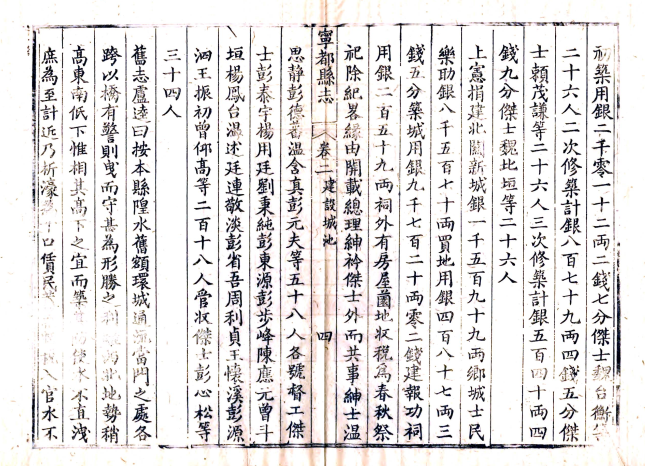 初築用銀二千零一十二兩二錢七分傑士魏台衡等
二十六人二次修築計銀八百七十九兩四錢五分傑
士賴茂謙等二十六人三次修築計銀五百四十兩四
錢九分傑士魏比垣等二十六人
上憲捐建北關新城銀一千五百九十九兩鄉城士民
樂助銀八千五百七十兩買地用銀四百八十七兩三
錢五分築城用銀九千七百二十兩零二錢建報功祠
用銀二百五十九兩祠外有房屋園地收稅爲春秋祭
祀除紀畧緣由開載總理紳衿傑士外而共事紳士温
寧都縣志
卷二
建設城池
四
思靜彭德蕃温含真彭元夫等五十八人各號督工傑
士彭泰宇楊用廷劉秉純彭東源彭步峰陳應元曾斗
垣楊鳳台温述廷連敬淡彭省吾周利貞王懷溪彭源
泗王振初曾仰高等二百十八人管收傑士彭心松等
三十四人
舊志盧逵曰按本縣隍水舊額環城通流當門之處各
跨以橋有警則曳而守甚爲形勝之利 西北地勢稍
高東南低下惟相其高下之宜而築 使水不直洩
庶為至計近乃折濠 賃民 入官水不